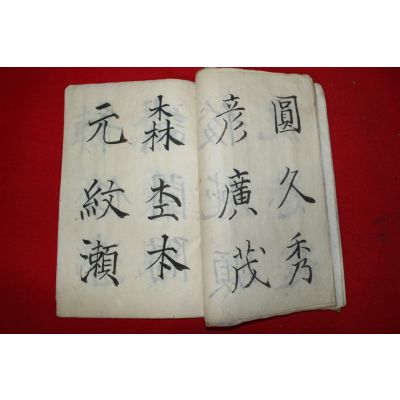 圓久秀
彦廣茂
森杢本
元紋瀬